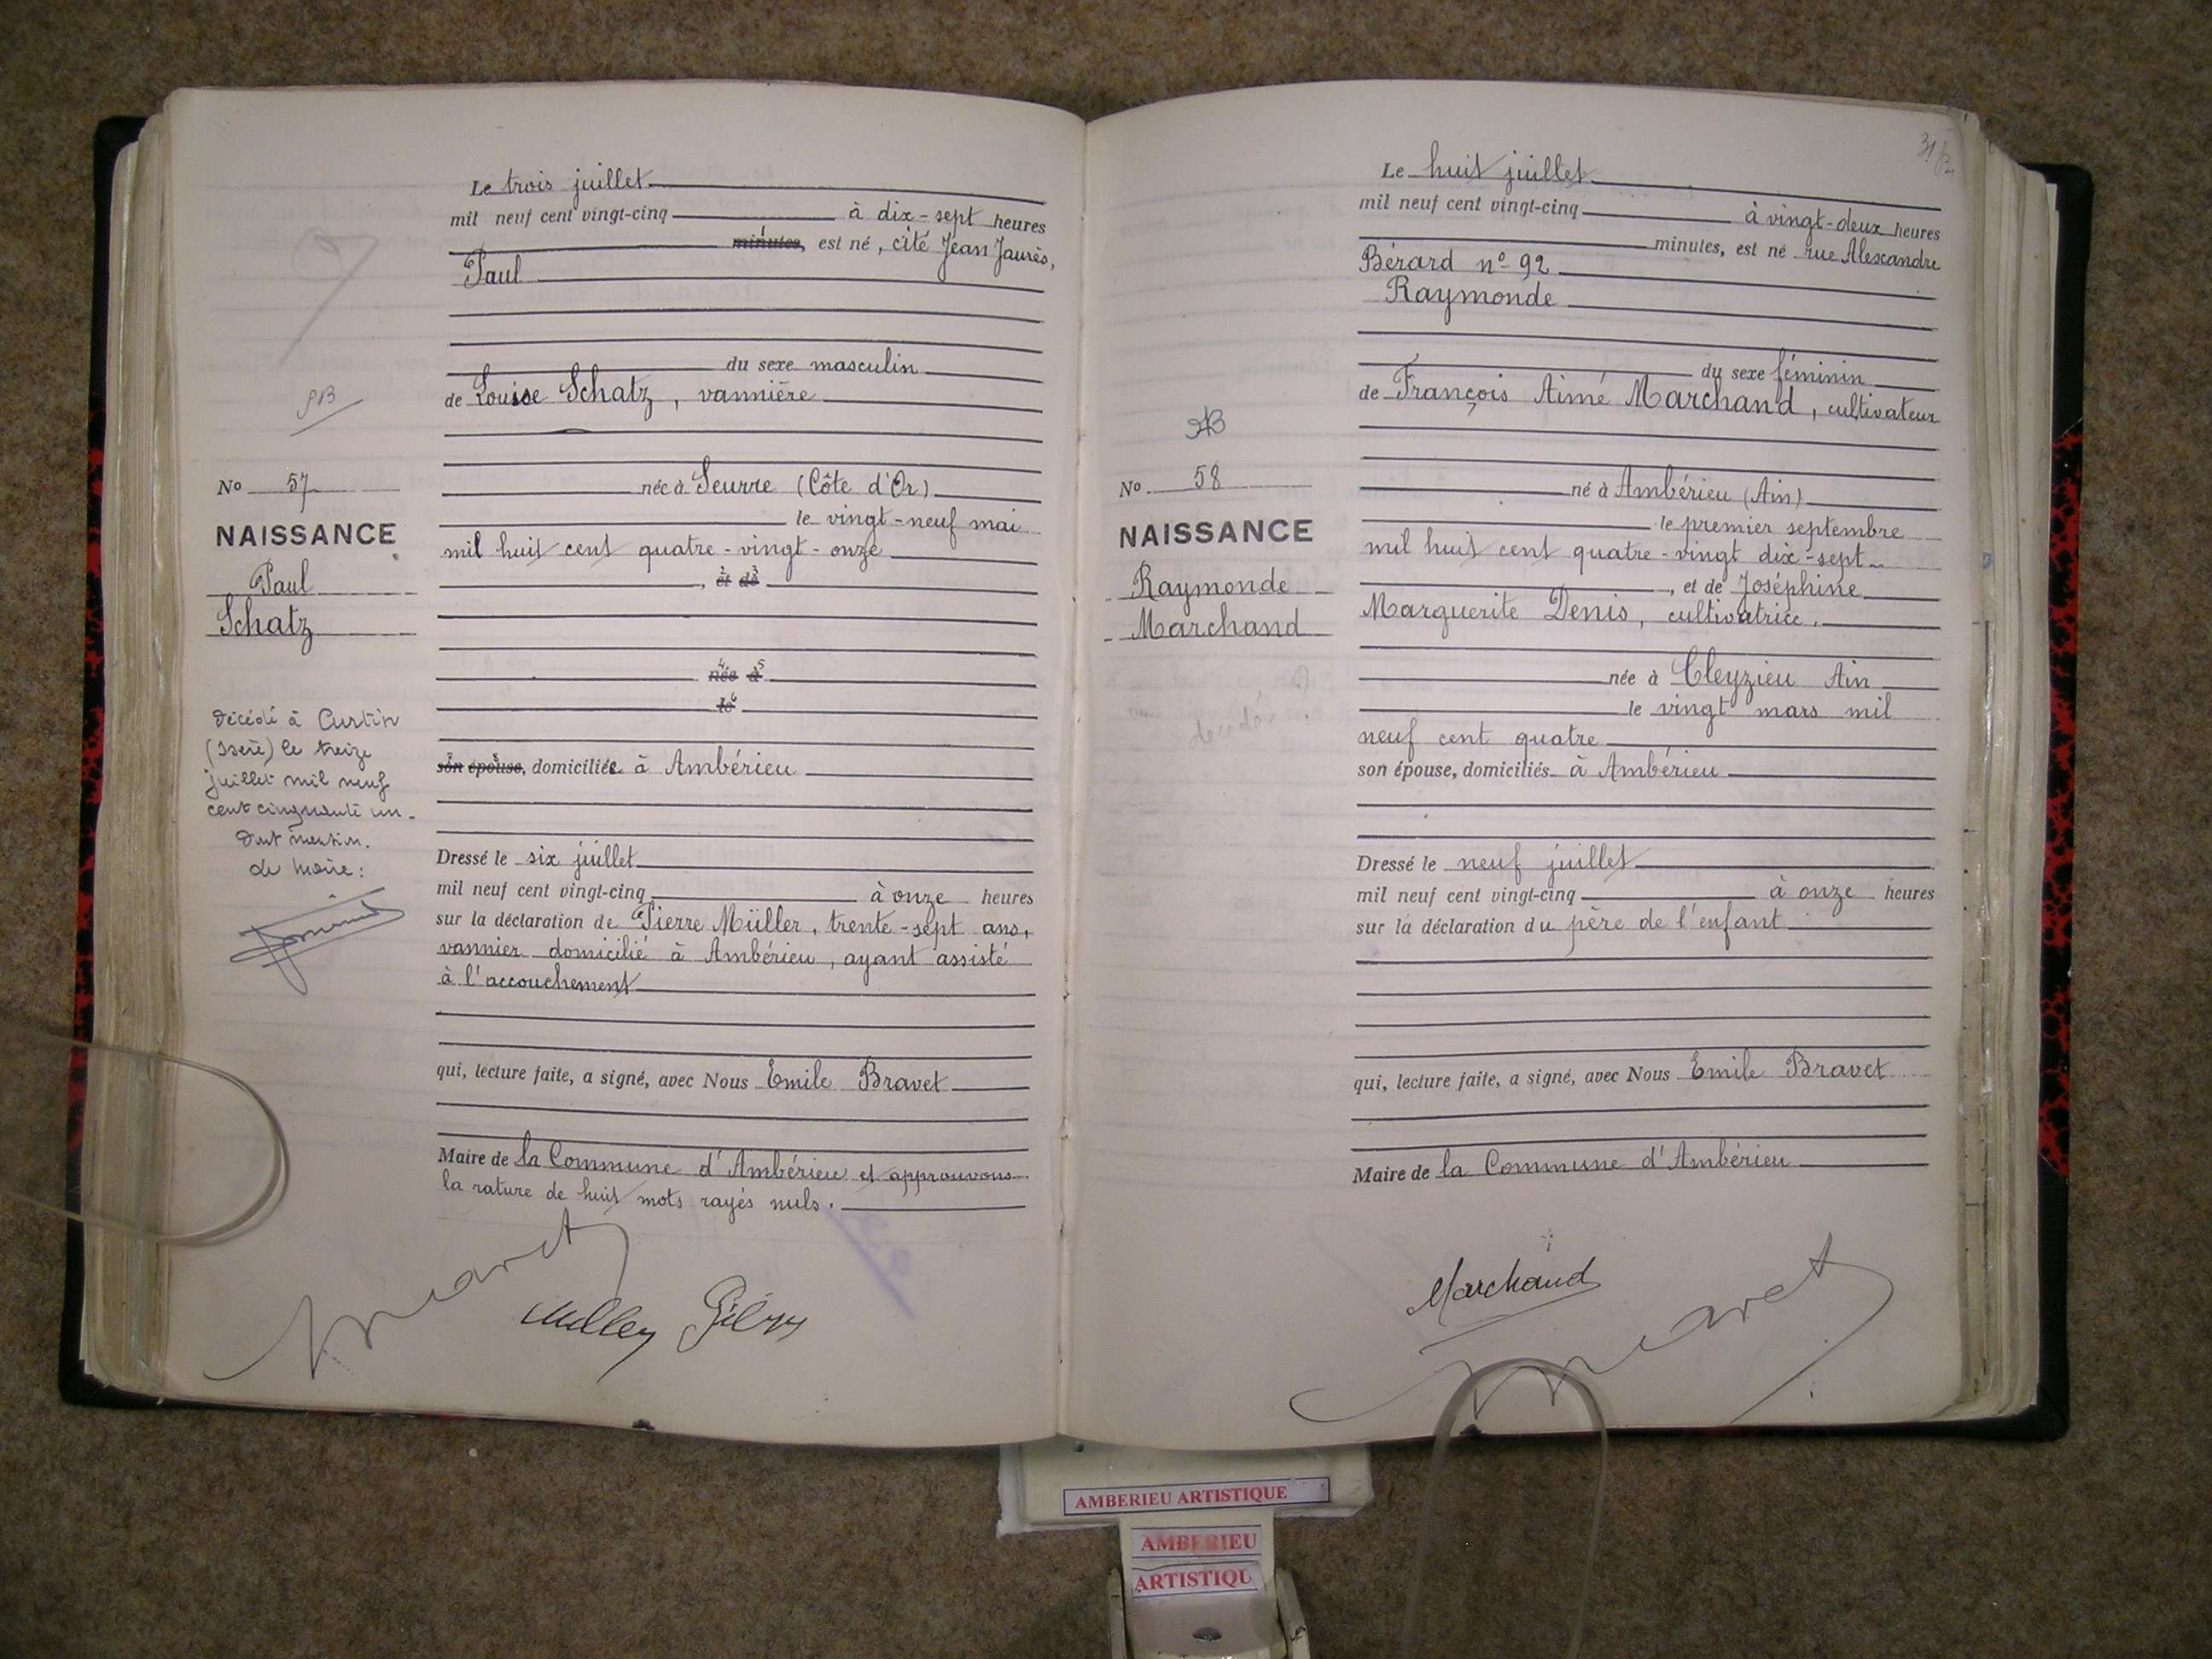 Le trois juillet
mil neuf cent vingt-cinq à dix-sept heures
minutes, est né, cité Jean Jaurès,
Paul
du sexe masculin
de Louise Schatz, vannière
née à Seurre (Côte d'Or)
le vingt-neuf mai
mil huit cent quatre-vingt-onze
, et de
née à
le
son épouse, domiciliée à Ambérieu
Dressé le six juillet
mil neuf cent vingt-cinq à onze heures
sur la déclaration de Pierre Müller, trente-sept ans,
vannier domicilié à Ambérieu, ayant assisté
à l'accouchement
qui, lecture faite, a signé, avec Nous Emile Bravet
Maire de la Commune d'Ambérieu et approuvons
la rature de huit mots rayés nuls.
No 57
NAISSANCE
Paul
Schatz
Décédé à Curtin
(Isère) le treize
juillet mil neuf
cent cinquante un.
Dont mention.
Le Maire:
Le huit juillet
mil neuf cent vingt-cinq à vingt-deux heures
minutes, est né rue Alexandre
Bérard n° 92
Raymonde
du sexe féminin
de François Aimé Marchand, cultivateur
né à Ambérieu (Ain)
le premier septembre
mil huit cent quatre-vingt dix-sept
, et de Joséphine
Marguerite Denis, cultivatrice.
née à Cleyzieu Ain
le vingt mars mil
neuf cent quatre
son épouse, domiciliés à Ambérieu
Dressé le neuf juillet
mil neuf cent vingt-cinq à onze heures
sur la déclaration du père de l'enfant
qui, lecture faite, a signé, avec Nous Emile Bravet
Maire de la Commune d'Ambérieu
No 58
NAISSANCE
Raymonde
Marchand
Marchand
AMBERIEU ARTISTIQUE
AMBERIEU
ARTISTIQU